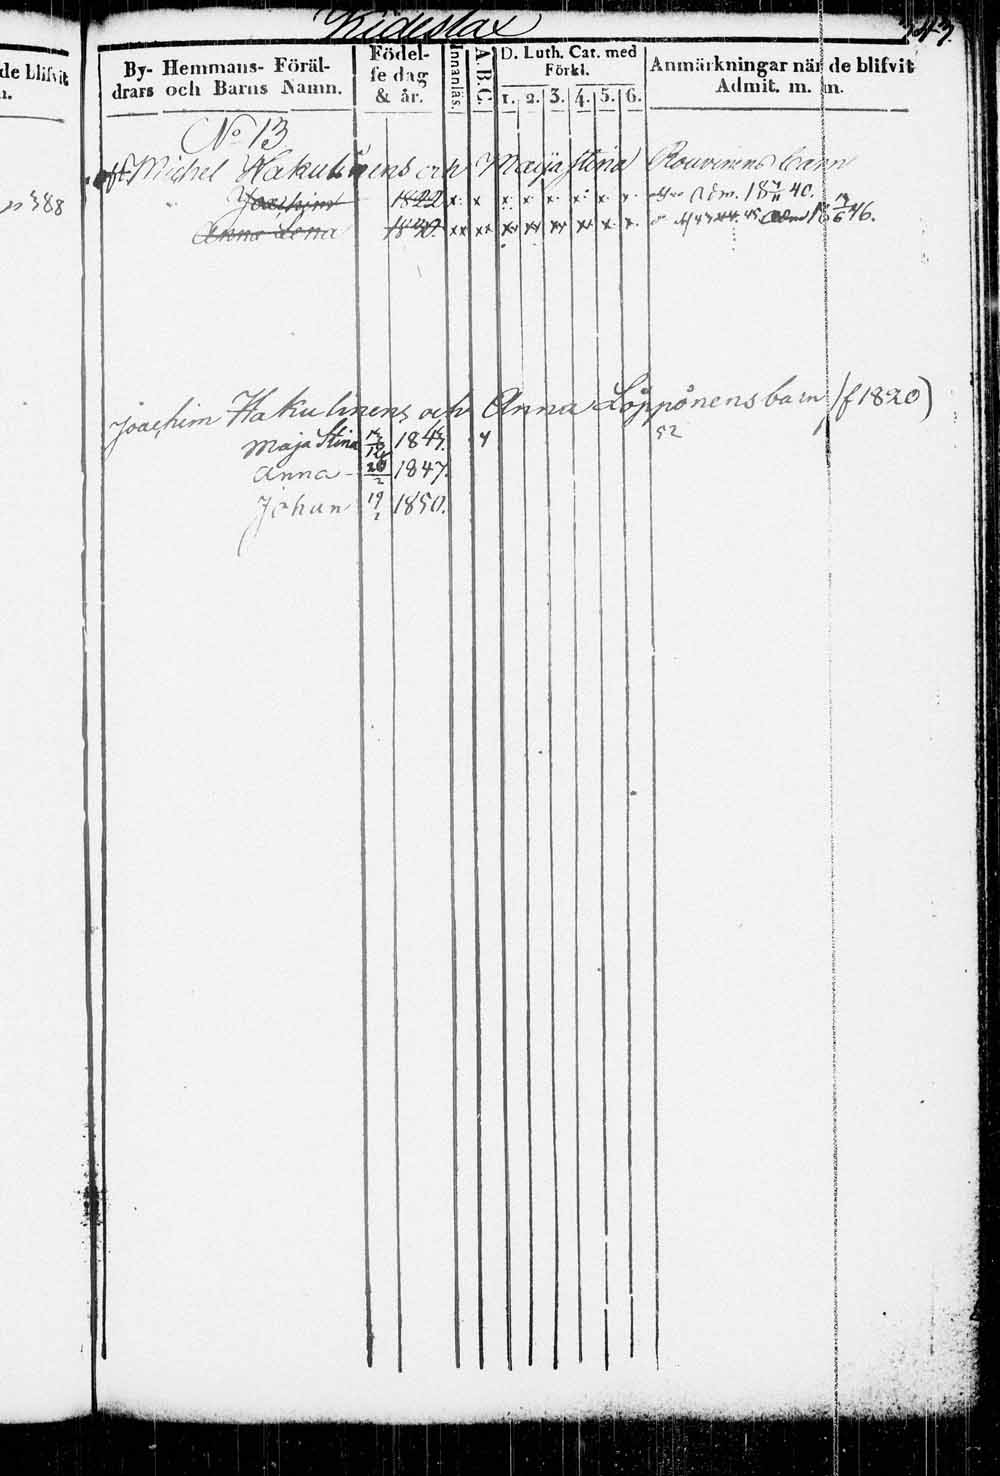 Kideslax
343.
de blifvit
By- Hemmans- Föräl-
drars och Barns Namn.
Födel-
se dag
& år.
Innanläs.
A.B.C.
D. Luth. Cat. med
Förkl.
1. 2. 3. 4. 5. 6.
Anmärkningar när de blifvit
Admit. m. m.
No 13
Michel Hakulinens och Maija Stina Rouvinens barn
388
Joachim 1822 x x x x x x x x Adm. 18 40.
Anna Lena xx xx xx xx xx xx x x 43 44. 45. 18 46.
Joachim Hakulinens och Anna Löppönens barn (f 1820)
Maja Stina 52
Anna 1847.
Johan 19/2 1850.